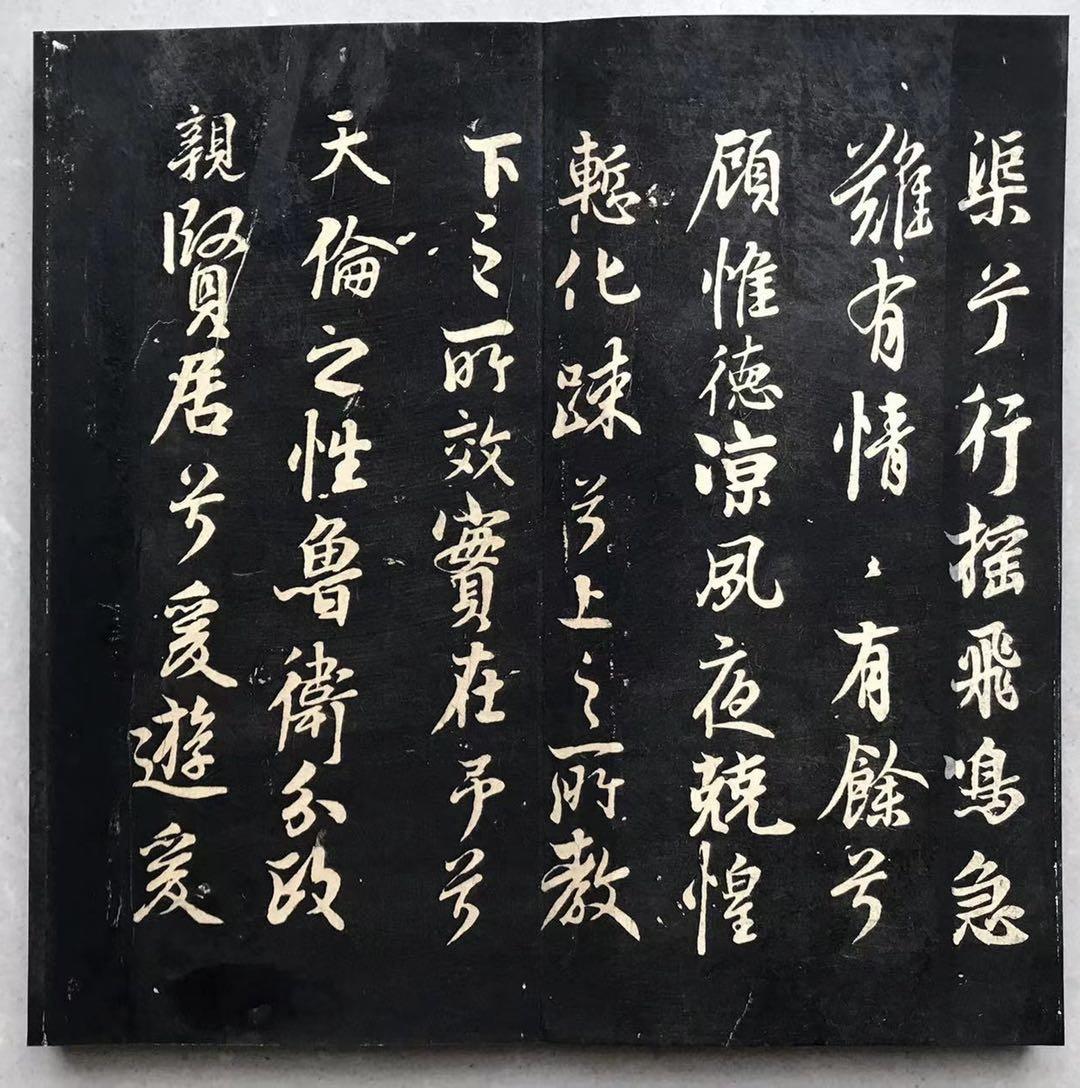 渠兮行搖飛鳴急
難有情〻有餘兮
顧惟德涼夙夜兢惶
慙化踈兮上之所教
下之所效實在予兮
天倫之性魯衛分政
親賢居兮爰遊爰